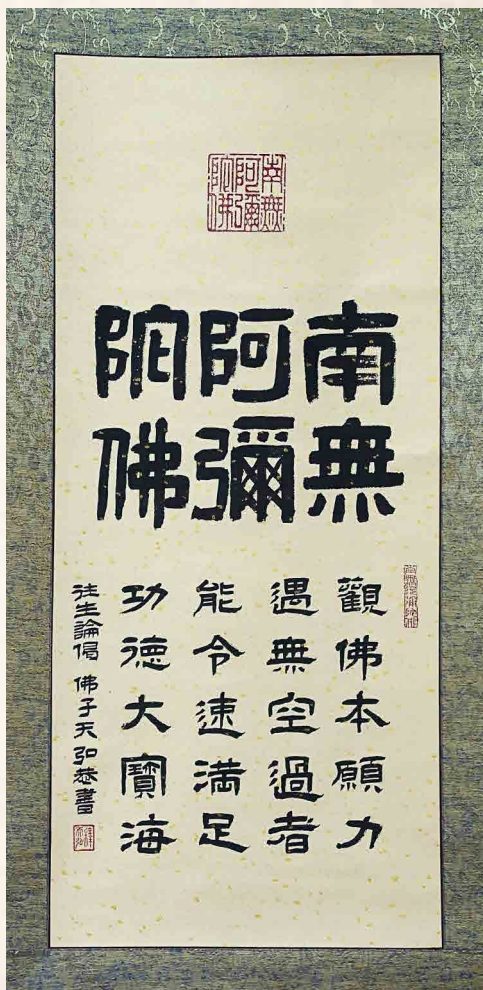 南無
阿彌
陀佛
南無
阿彌
陀佛
觀佛本願力
遇無空過者
能令速滿足
功德大寶海
往生論偈 佛子天弘恭書